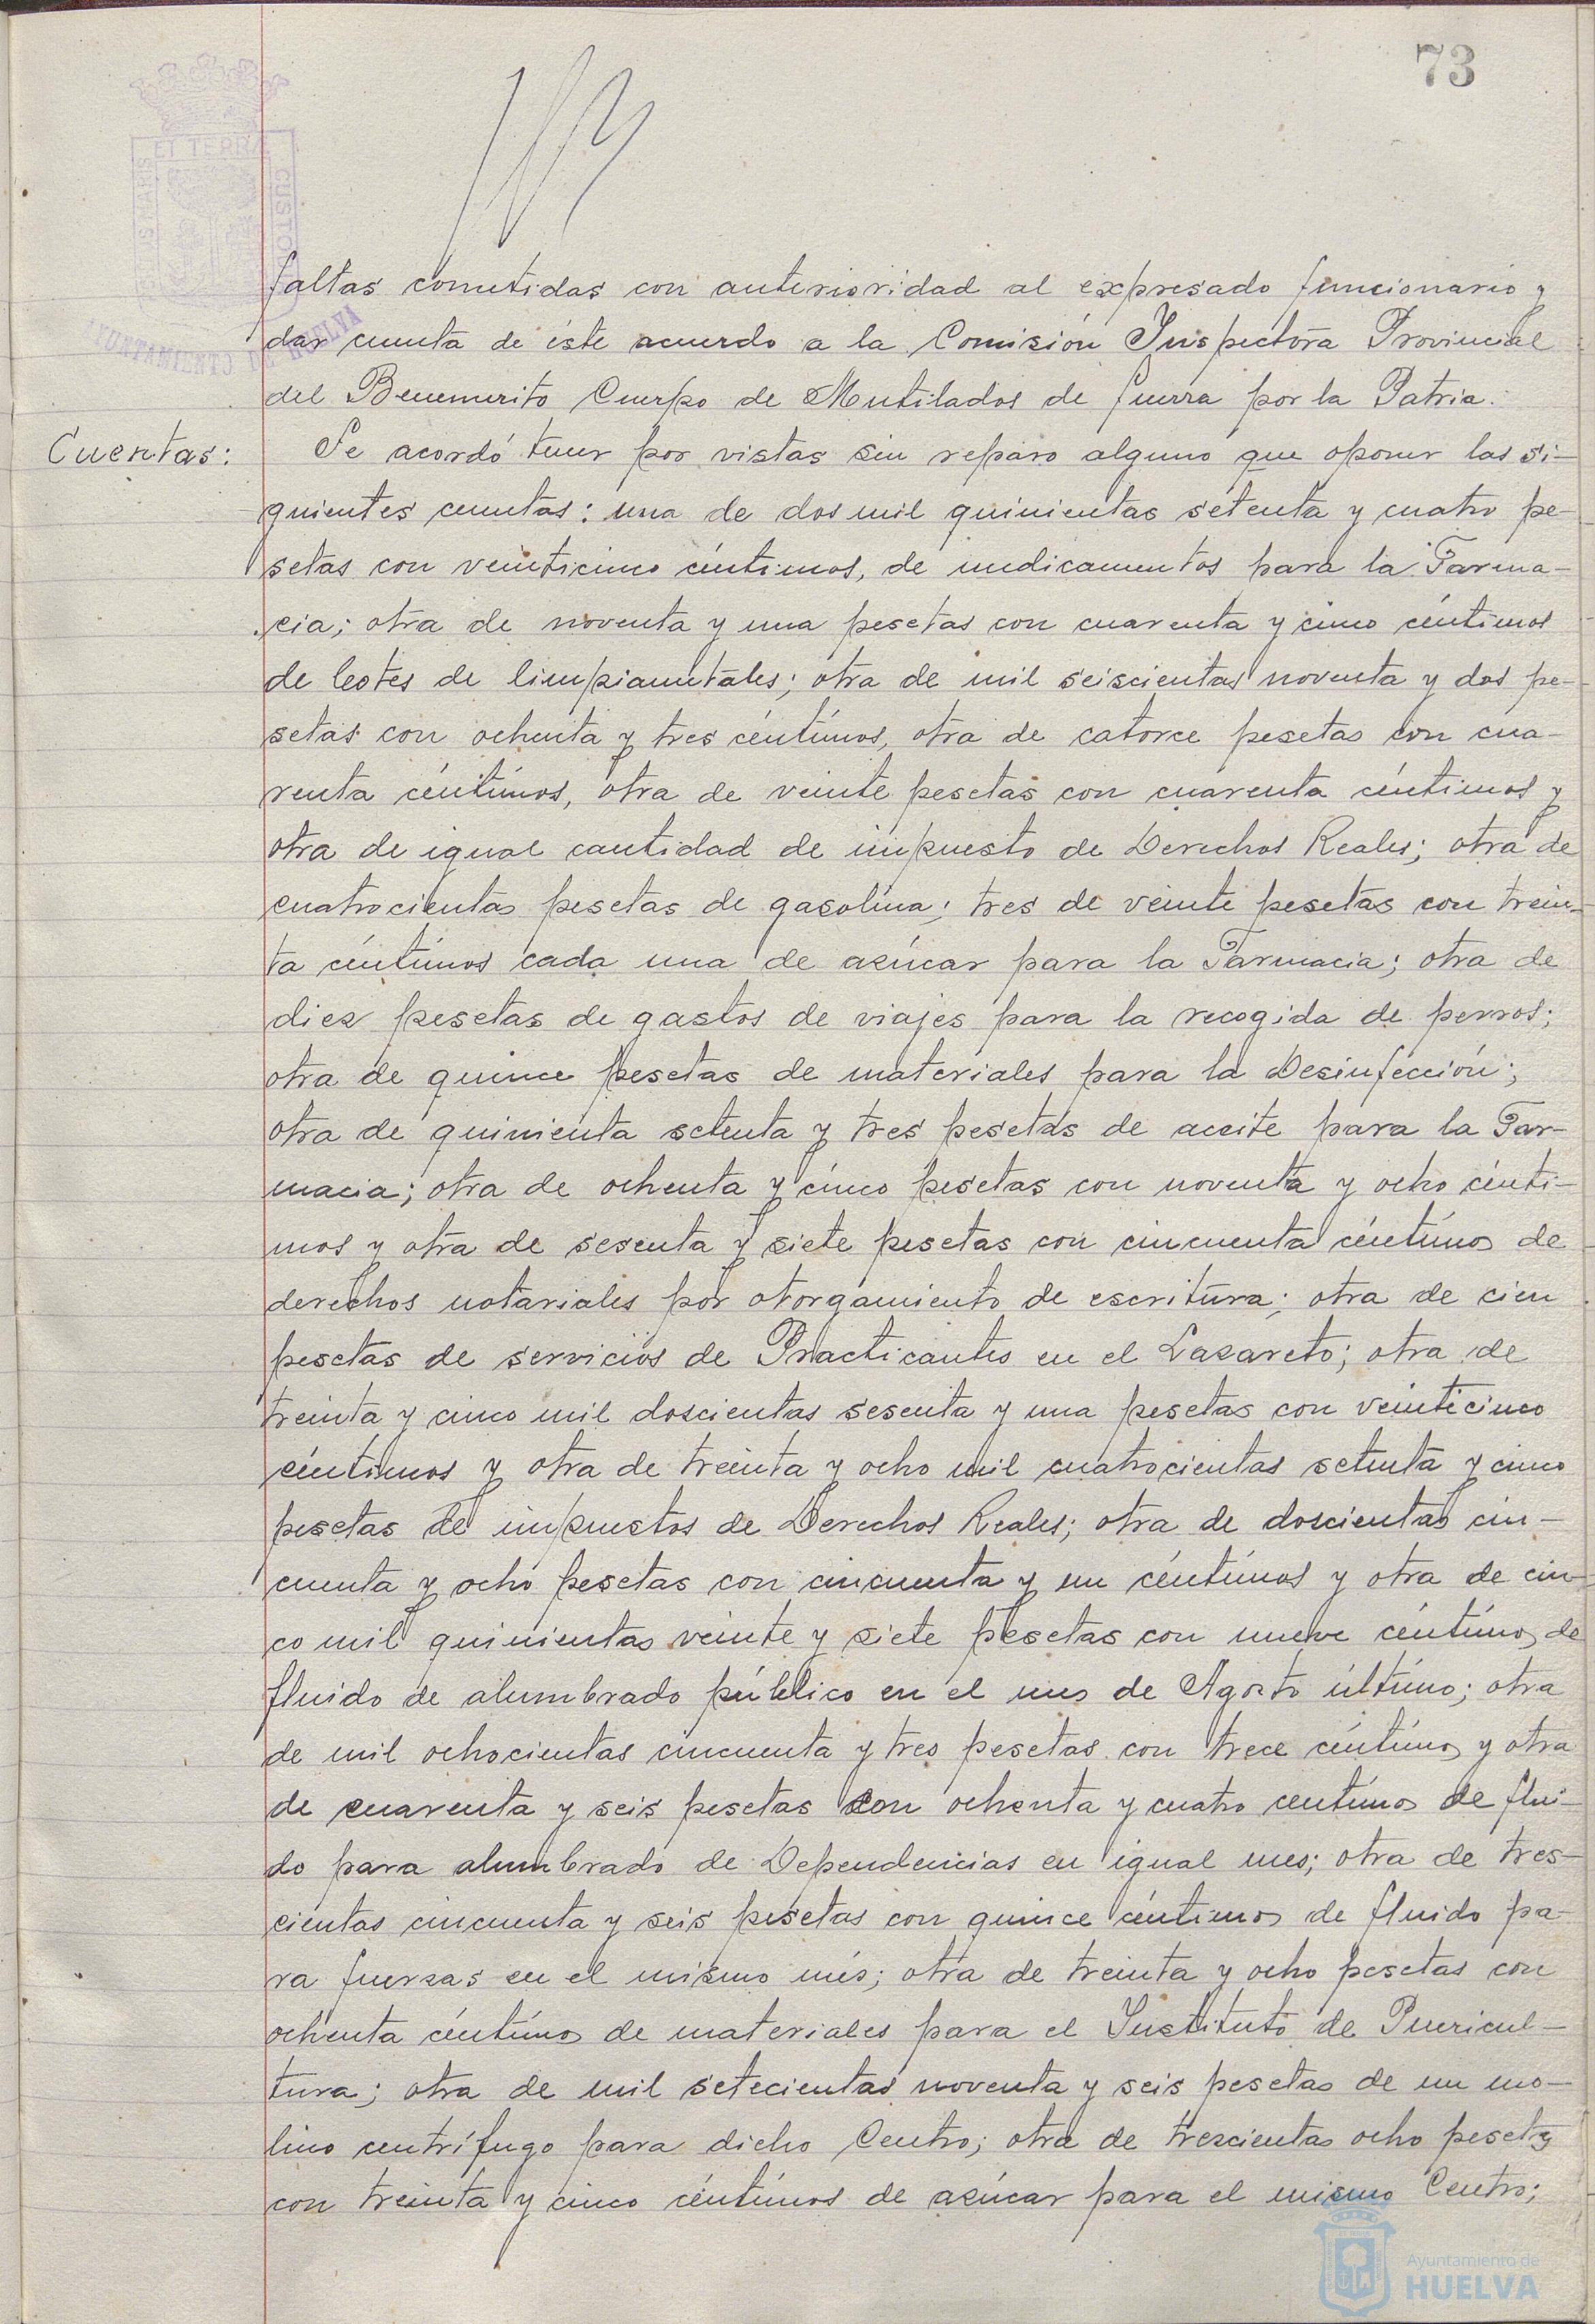 73
ET TERRÆ
CUSTO
AYUNTAMIENTO DE HUELVA
faltas cometidas con anterioridad al expresado funcionario y
dar cuenta de éste acuerdo a la Comisión Inspectora Provincial
del Benemerito Cuerpo de Mutilados de guerra por la Patria.
Cuentas: Se acordó tener por vistas sin reparo alguno que oponer las si-
guientes cuentas: una de dos mil quinientas setenta y cuatro pe-
setas con veinticinco céntimos, de medicamentos para la Farma-
cia; otra de noventa y una pesetas con cuarenta y cinco céntimos
de botes de limpiametales; otra de mil seiscientas noventa y dos pe-
setas con ochenta y tres céntimos, otra de catorce pesetas con cua-
renta céntimos, otra de veinte pesetas con cuarenta céntimos y
otra de igual cantidad de impuesto de Derechos Reales; otra de
cuatrocientas pesetas de gasolina; tres de veinte pesetas con trein-
ta céntimos cada una de azúcar para la Farmacia; otra de
diez pesetas de gastos de viajes para la recogida de perros;
otra de quince pesetas de materiales para la Desinfección;
otra de quinienta setenta y tres pesetas de aceite para la Far-
macia; otra de ochenta y cinco pesetas con noventa y ocho cénti-
mos y otra de sesenta y siete pesetas con cincuenta céntimos de
derechos notariales por otorgamiento de escritura; otra de cien
pesetas de servicios de Practicantes en el Lazareto; otra de
treinta y cinco mil doscientas sesenta y una pesetas con veinticinco
céntimos y otra de treinta y ocho mil cuatrocientas setenta y cinco
pesetas de impuestos de Derechos Reales; otra de doscientas cin-
cuenta y ocho pesetas con cincuenta y un céntimos y otra de cin-
co mil quinientas veinte y siete pesetas con nueve céntimos de
fluido de alumbrado público en el mes de Agosto último; otra
de mil ochocientas cincuenta y tres pesetas con trece céntimos y otra
de cuarenta y seis pesetas con ochenta y cuatro centimos de flui-
do para alumbrado de Dependencias en igual mes; otra de tres-
cientas cincuenta y seis pesetas con quince céntimos de fluido pa-
ra fuerzas en el mismo més; otra de treinta y ocho pesetas con
ochenta céntimos de materiales para el Instituto de Puericul-
tura; otra de mil setecientas noventa y seis pesetas de un mo-
lino centrífugo para dicho Centro; otra de trescientas ocho pesetas
con treinta y cinco céntimos de azúcar para el mismo Centro;
Ayuntamiento de
HUELVA